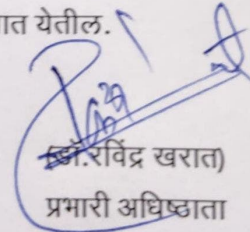 ात येतील.
(डॉ.रविंद्र खरात)
प्रभारी अधिष्ठाता